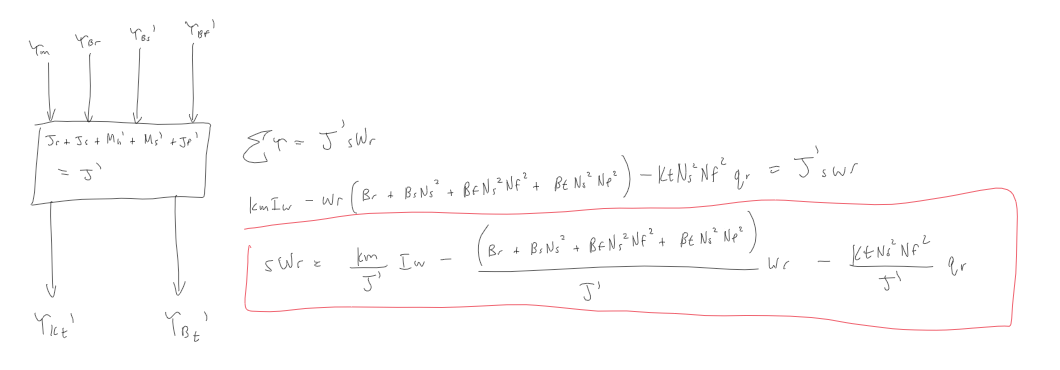 τm τBr τBs' τBf'
Jr + Js + Mn' + Ms' + Jf'
= J'
τKt' τBt'
∑τ = J'sWr
kmIw - Wr(Br + BsNs² + BfNs²Nf² + BtNs²Nf²) - KtNs²Nf² qr = J'sWr
sWr = km/J' Iw - (Br + BsNs² + BfNs²Nf² + BtNs²Nf²)/J' Wr - KtNs²Nf²/J' qr